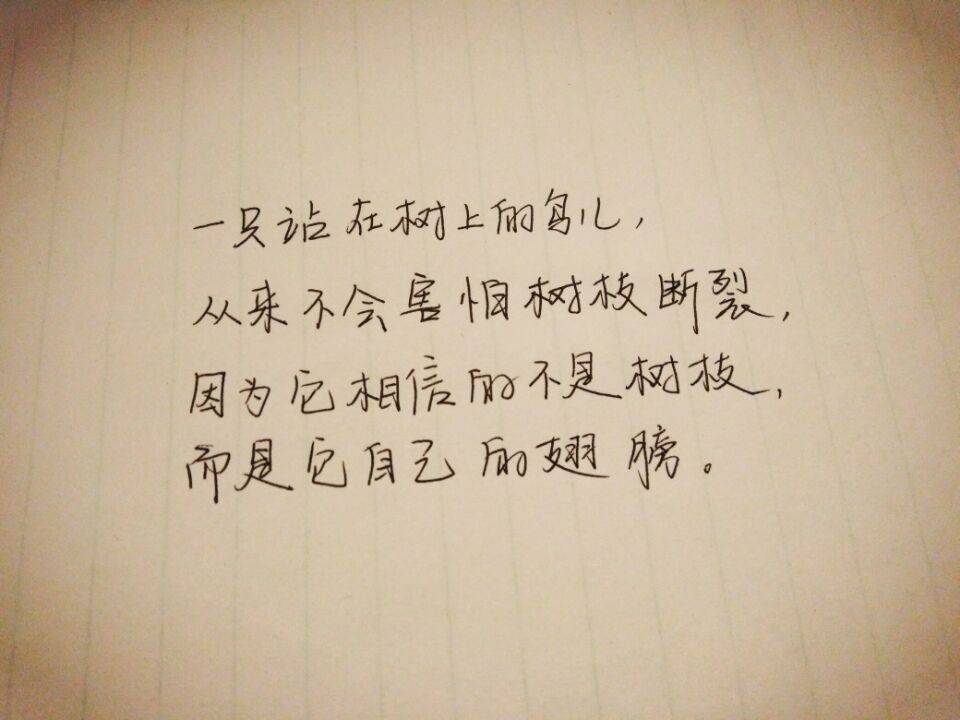 一只站在树上的鸟儿，
从来不会害怕树枝断裂，
因为它相信的不是树枝，
而是它自己的翅膀。